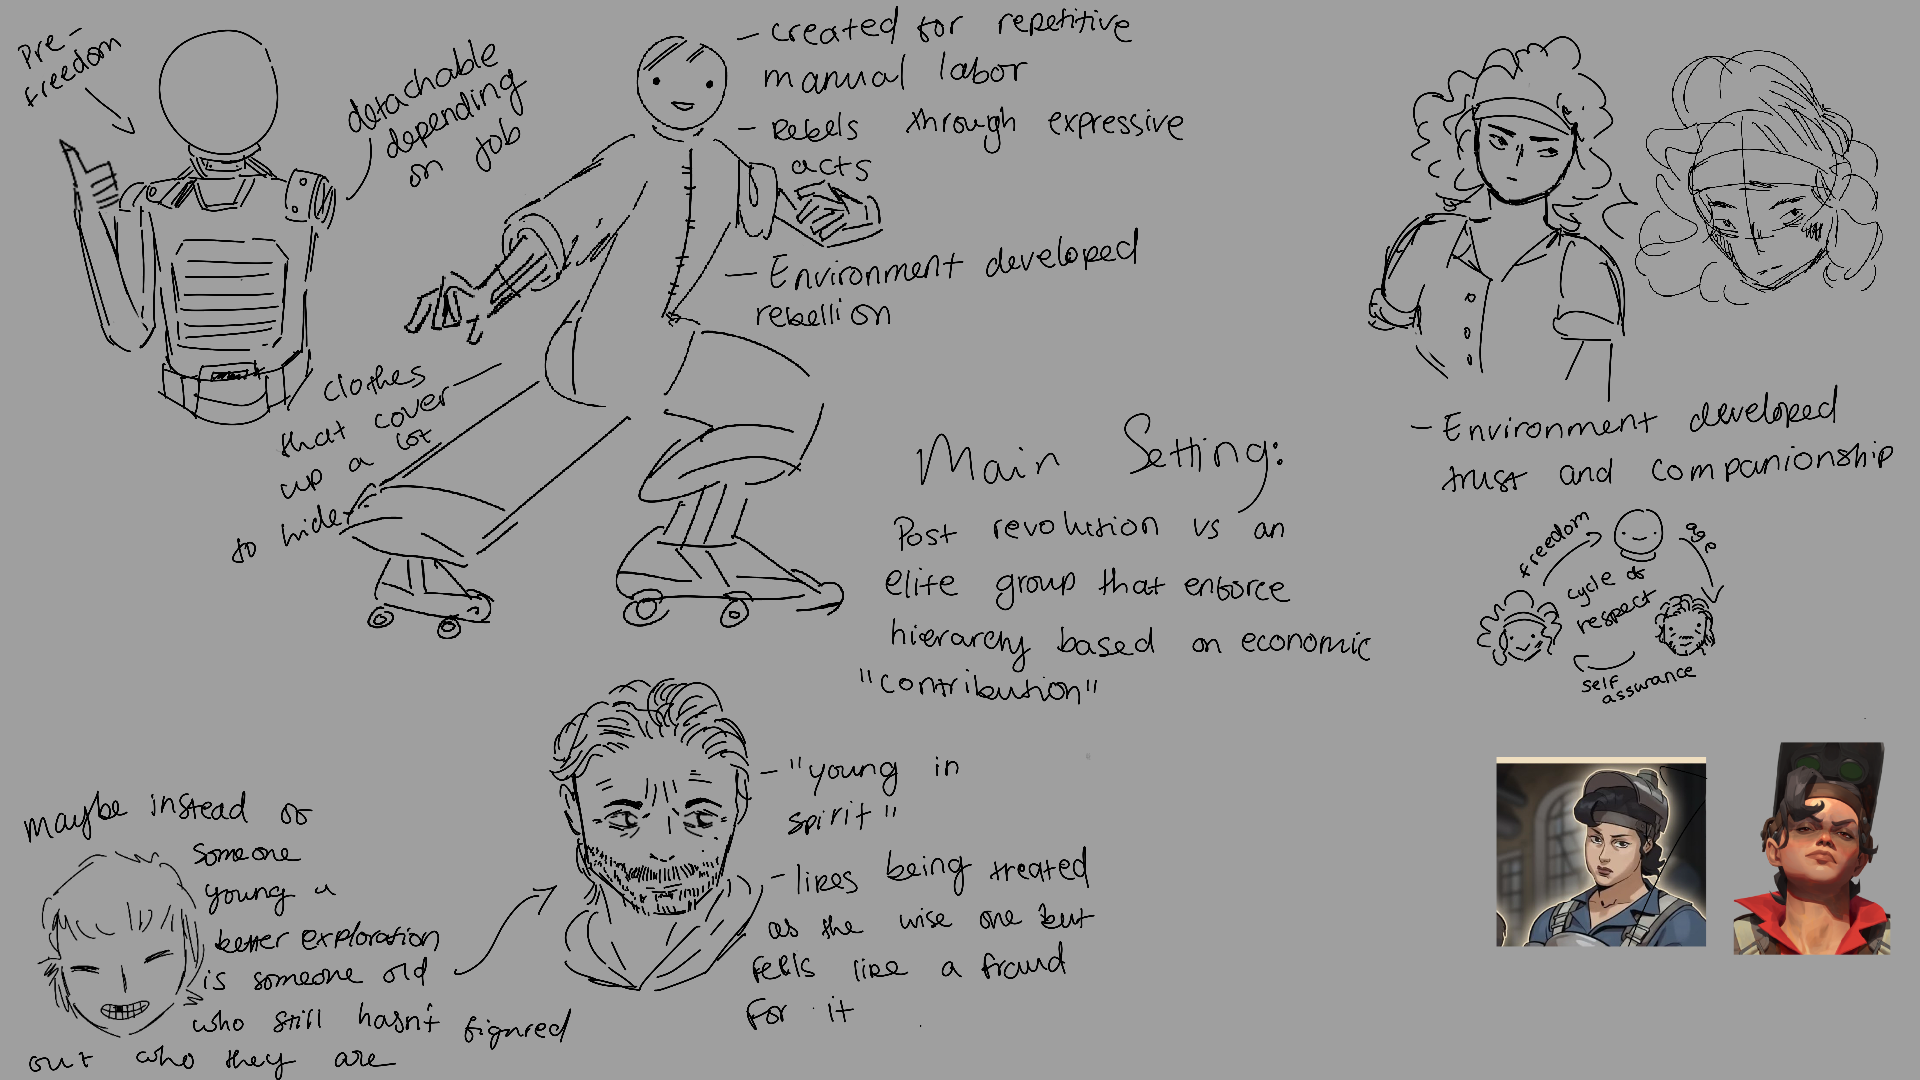 Pre-
freedom
detachable
depending
on job
- created for repetitive
manual labor
- Rebels through expressive
acts
- Environment developed
rebellion
clothes
that cover
up a lot
to hide
Main Setting:
Post revolution vs an
elite group that enforce
hierarchy based on economic
"contribution"
- Environment developed
trust and companionship
freedom
age
cycle of
respect
self
assurance
maybe instead of
someone
young a
better exploration
is someone old
who still hasn't figured
out who they are
- "young in
spirit"
- likes being treated
as the wise one but
feels like a fraud
for it